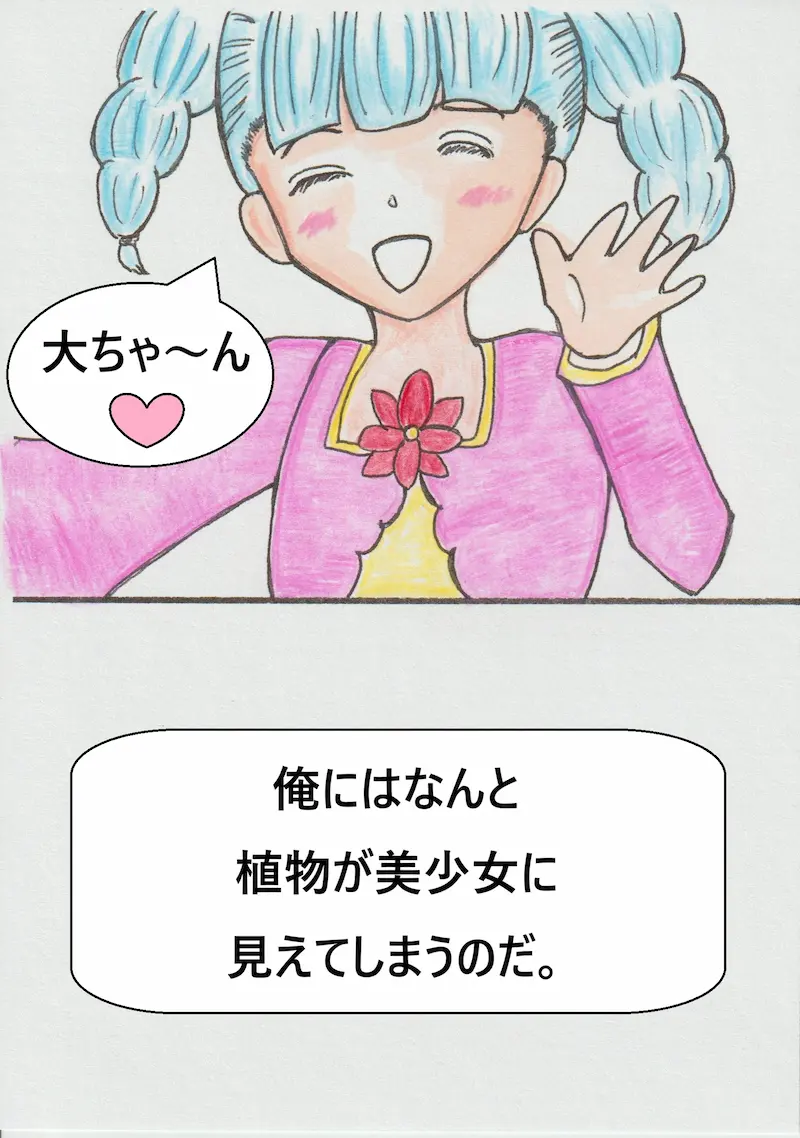 大ちゃ～ん
俺にはなんと
植物が美少女に
見えてしまうのだ。